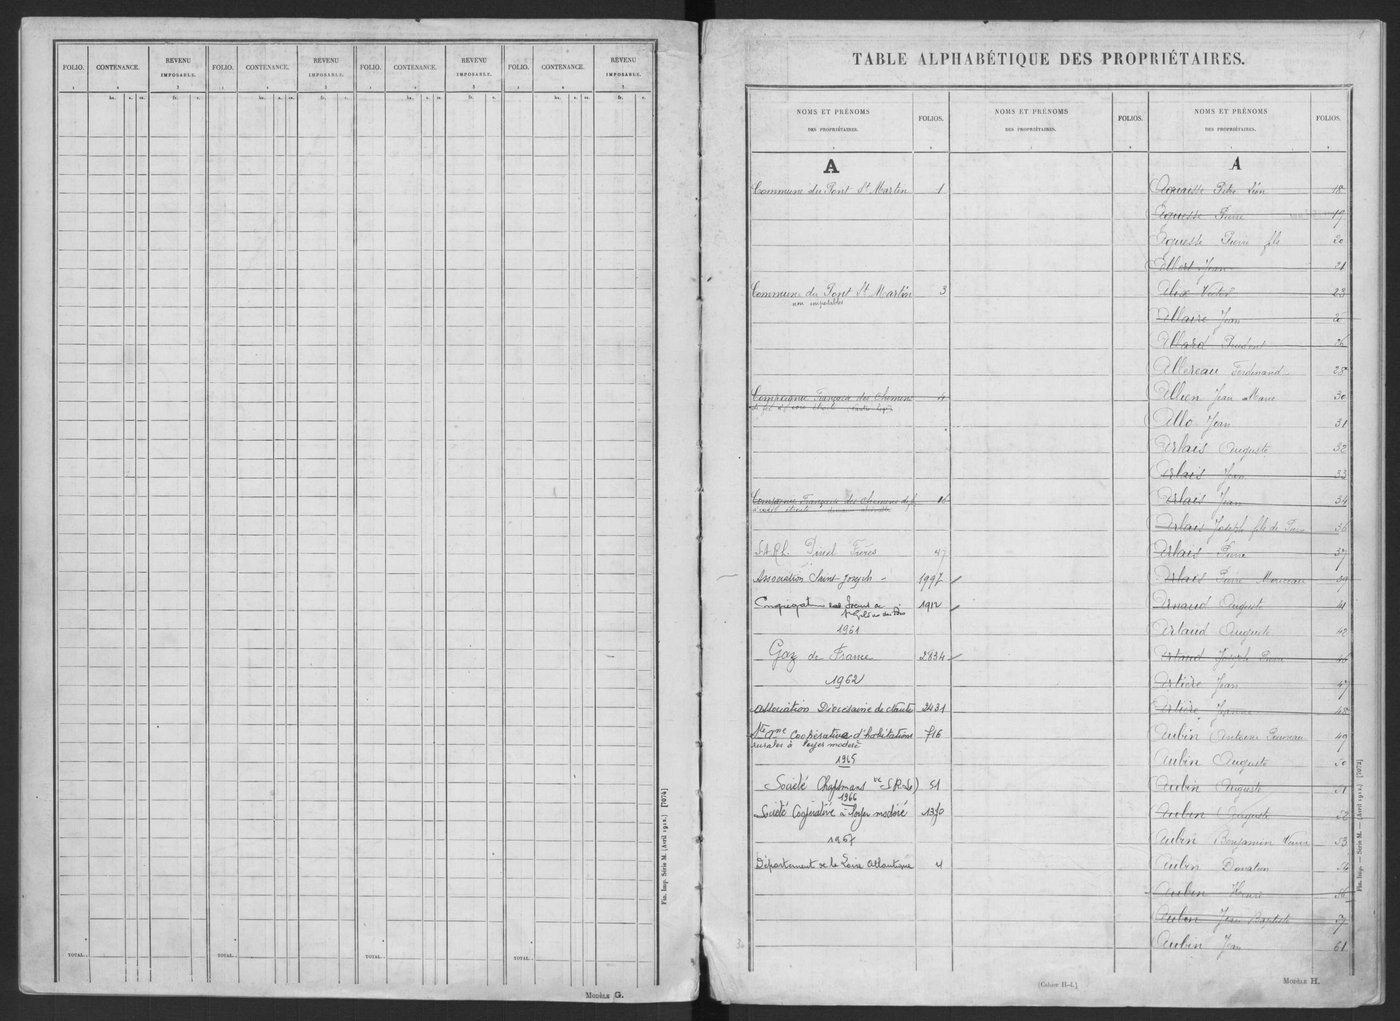 FOLIO. CONTENANCE. REVENU IMPOSABLE. FOLIO. CONTENANCE. REVENU IMPOSABLE. FOLIO. CONTENANCE. REVENU IMPOSABLE. FOLIO. CONTENANCE. REVENU IMPOSABLE.
1 2 3 1 2 3 1 2 3 1 2 3
ha. a. ca. fr. c. ha. a. ca. fr. c. ha. a. ca. fr. c. ha. a. ca. fr. c.
TOTAL. TOTAL. TOTAL. TOTAL.
Fin. Imp. Série M. (Avril 1912.) [7074]
MODÈLE G.
TABLE ALPHABÉTIQUE DES PROPRIÉTAIRES.
NOMS ET PRÉNOMS DES PROPRIÉTAIRES. FOLIOS. NOMS ET PRÉNOMS DES PROPRIÉTAIRES. FOLIOS. NOMS ET PRÉNOMS DES PROPRIÉTAIRES. FOLIOS.
A
Commune du Pont St Martin 1
Commune du Pont St Martin 3
non imposables
Compagnie Française des Chemins 4
Compagnie Française des Chemins de f. 16
S.A.R.L. Pinel Frères 47
Association Saint-Joseph 1997
1912
1961
Gaz de France 2834
1962
Association Diocésaine de Nantes 2431
Sté Ame Coopérative d'habitations 716
rurales à loyer modéré
1965
Société Chapsmans 51
1966
Société Coopérative à loyer modéré 1370
1967
Département de la Loire Atlantique 4
A
18
Aguesse Pierre 19
Aguesse Pierre fils 20
Albert Jean 21
Victor 23
Allaire Jean
Allard Prudent 26
Allereau Ferdinand 28
Jean Marie 30
Allo Jean 31
Arlais Auguste 32
Arlais Jean 33
Arlais Jean 34
Arlais Joseph fils de Pierre 36
Arlais Pierre 37
Arlais Pierre 39
Arnaud Auguste 41
Artaud Auguste 42
Artaud Joseph Pierre 46
Artière Jean 47
Artière Jeanne 48
Aubin Antoine 49
Aubin Auguste 50
Aubin Auguste 51
Aubin Auguste 52
Aubin Benjamin 53
Aubin Donatien 54
Aubin Henri 56
Aubin Jean Baptiste 57
Aubin Jean 61
(Cahier H-I.)
MODÈLE H.
Fin. Imp. — Série M. — (Avril 1912.) [7073]